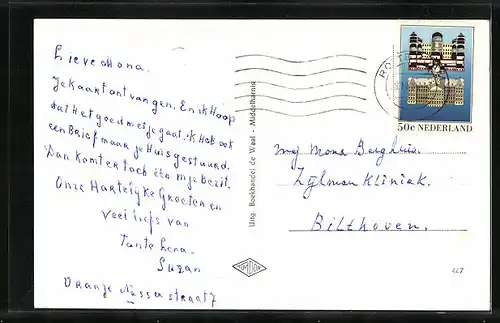 Lieve Mona.
Je kaart ontvangen. En ik Hoop
dat Het goed met je gaat. ik Heb ook
een Brief naar je Huis gestuurd.
Dan komt er toch één in je Bezit.
Onze Hartelijke Groeten en
Veel liefs van
Tante Lena.
Suzan
Oranje Nassau straat 7
Uitg. Boekhandel de Waal - Middelharnis
50c NEDERLAND
Mej Mona Berghuis.
Zijlman Kliniek.
Bilthoven.